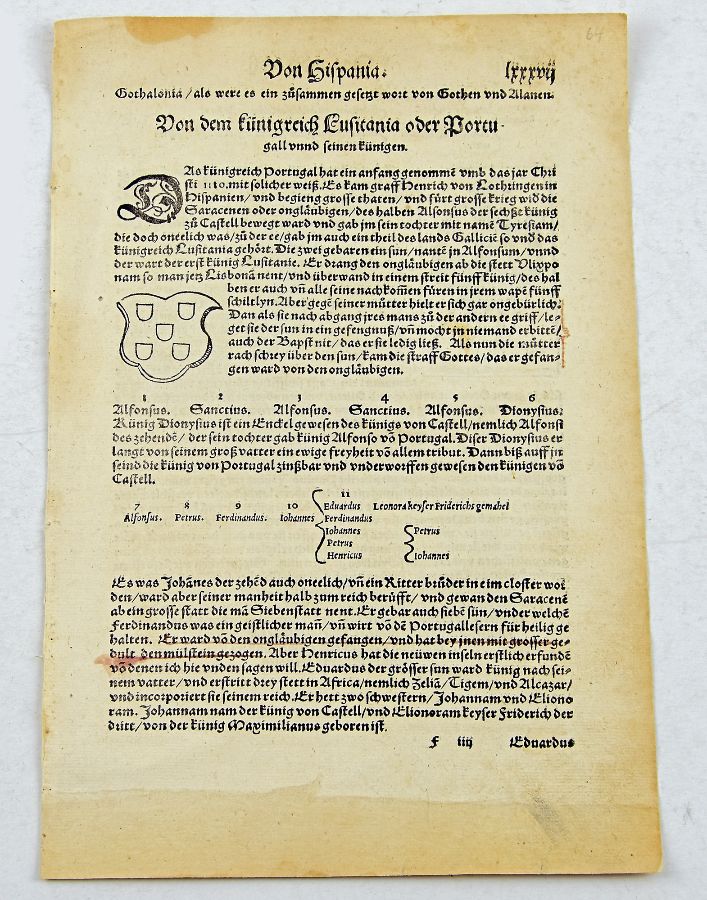 64
Von Hispania. lxxxvij
Gothalonia / als were es ein zůsammen gesetzt wort von Gothen vnd Alanen.
Von dem künigreich Lusitania oder Portu-
gall vnnd seinen künigen.
DAs künigreich Portugal hat ein anfang genommē vmb das jar Chri
sti 1110. mit solicher weiß. Es kam graff Henrich von Lothringen in
Hispanien / vnd begieng grosse thaten / vnd fürt grosse krieg wid die
Saracenen oder onglåubigen / des halben Alfonsus der sechßt künig
zů Castell bewegt ward vnd gab im sein tochter mit namē Tyresiam /
die doch oneelich was / zů der ee / gab jm auch ein theil des lands Gallicie so vnd das
künigreich Lusitania gehört. Die zwei gebaren ein sun / nantē jn Alfonsum / vnnd
der wart der erst künig Lusitanie. Er drang den onglåubigen ab die stett Vlixpo
nam so man jetz Lisbonā nent / vnd überwand in einem streit fünff künig / des hal
ben er auch vñ alle seine nachkom̄en füren in jrem wapē fünff
schiltlyn. Aber gegē seiner můtter hielt er sich gar ongebürlich:
Dan als sie nach abgang jres mans zů der andern ee griff / le-
get sie der sun in ein gefengnuß / vñ mocht jn niemand erbittē /
auch der Bapst nit / das er sie ledig ließ. Als nun die můtter
rach schrey über den sun / kam die straff Gottes / das er gefan-
gen ward von den onglåubigen.
1 2 3 4 5 6
Alfonsus. Sanctius. Alfonsus. Sanctius. Alfonsus. Dionysius.
Künig Dionysius ist ein Enckel gewesen des künigs von Castell / nemlich Alfonsi
des zehendē / der sein tochter gab künig Alfonso vō Portugal. Diser Dionysius er
langt von seinem groß vatter ein ewige freyheit vō allem tribut. Dann biß auff jn
seind die künig von Portugal zinßbar vnd vnderworffen gewesen den künigen vō
Castell.
11
7 8 9 10 Eduardus Leonora keyser Friderichs gemahel
Alfonsus. Petrus. Ferdinandus. Iohannes Ferdinandus
Iohannes Petrus
Petrus
Henricus Iohannes
Es was Johānes der zehēd auch oneelich / vñ ein Ritter brůder in eim closter wor
den / ward aber seiner manheit halb zum reich berůfft / vnd gewan den Saracenē
ab ein grosse statt die mā Siebenstatt nent. Er gebar auch siebē sün / vnder welchē
Ferdinandus was ein geistlicher mañ / vñ wirt vō dē Portugallesern für heilig ge
halten. Er ward vō den onglåubigen gefangen / vnd hat bey jnen mit grosser ge-
dult den mülstein gezogen. Aber Henricus hat die neüwen inseln erstlich erfundē
vō denen ich hie vnden sagen will. Eduardus der grösser sun ward künig nach sei-
nem vatter / vnd erstritt drey stett in Africa / nemlich Zeliā / Tigem / vnd Alcazar /
vnd incorporiert sie seinem reich. Er hett zwo schwestern / Johannam vnd Eliono
ram. Johannam nam der künig von Castell / vnd Elionoram keyser Friderich der
dritt / von der künig Maximilianus geboren ist.
f iiij Eduardus